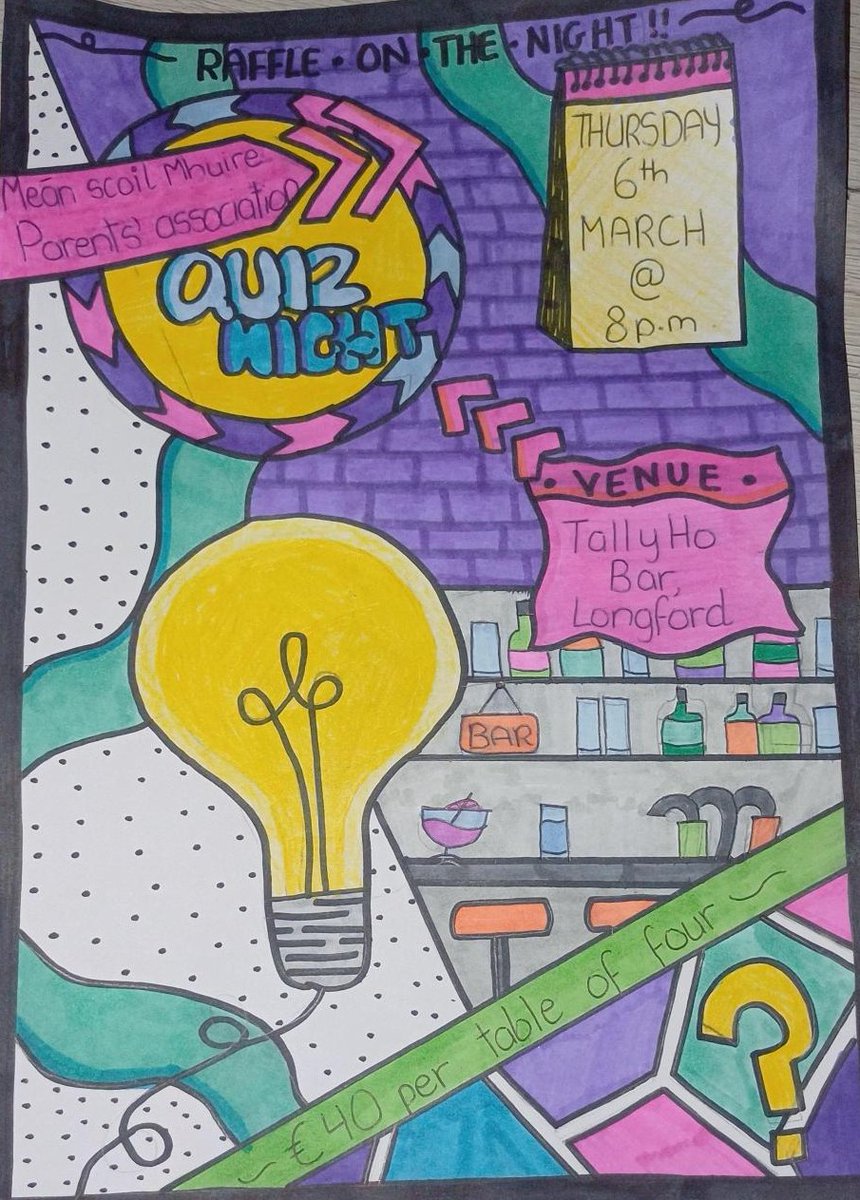 RAFFLE • ON • THE • NIGHT!!
Meán scoil Mhuire
Parents' association
QUIZ
NIGHT
THURSDAY
6th
MARCH
@
8p.m.
• VENUE •
Tally Ho
Bar,
Longford
BAR
~ €40 per table of four ~
?